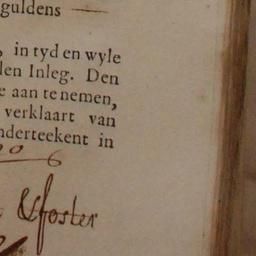 guldens —
, in tyd en wyle
len Inleg. Den
e aan te nemen,
verklaart van
nderteekent in